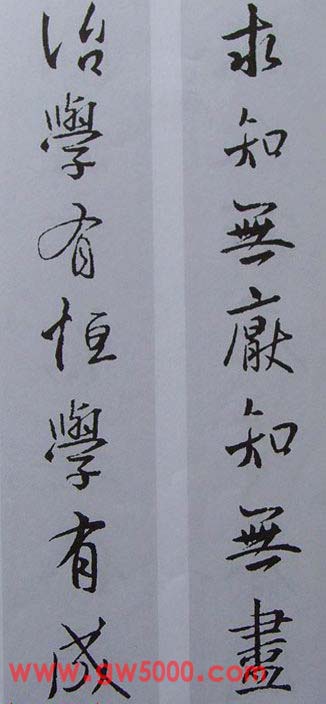 求知無厭知無盡
治學有恒學有成
www.gw5000.com